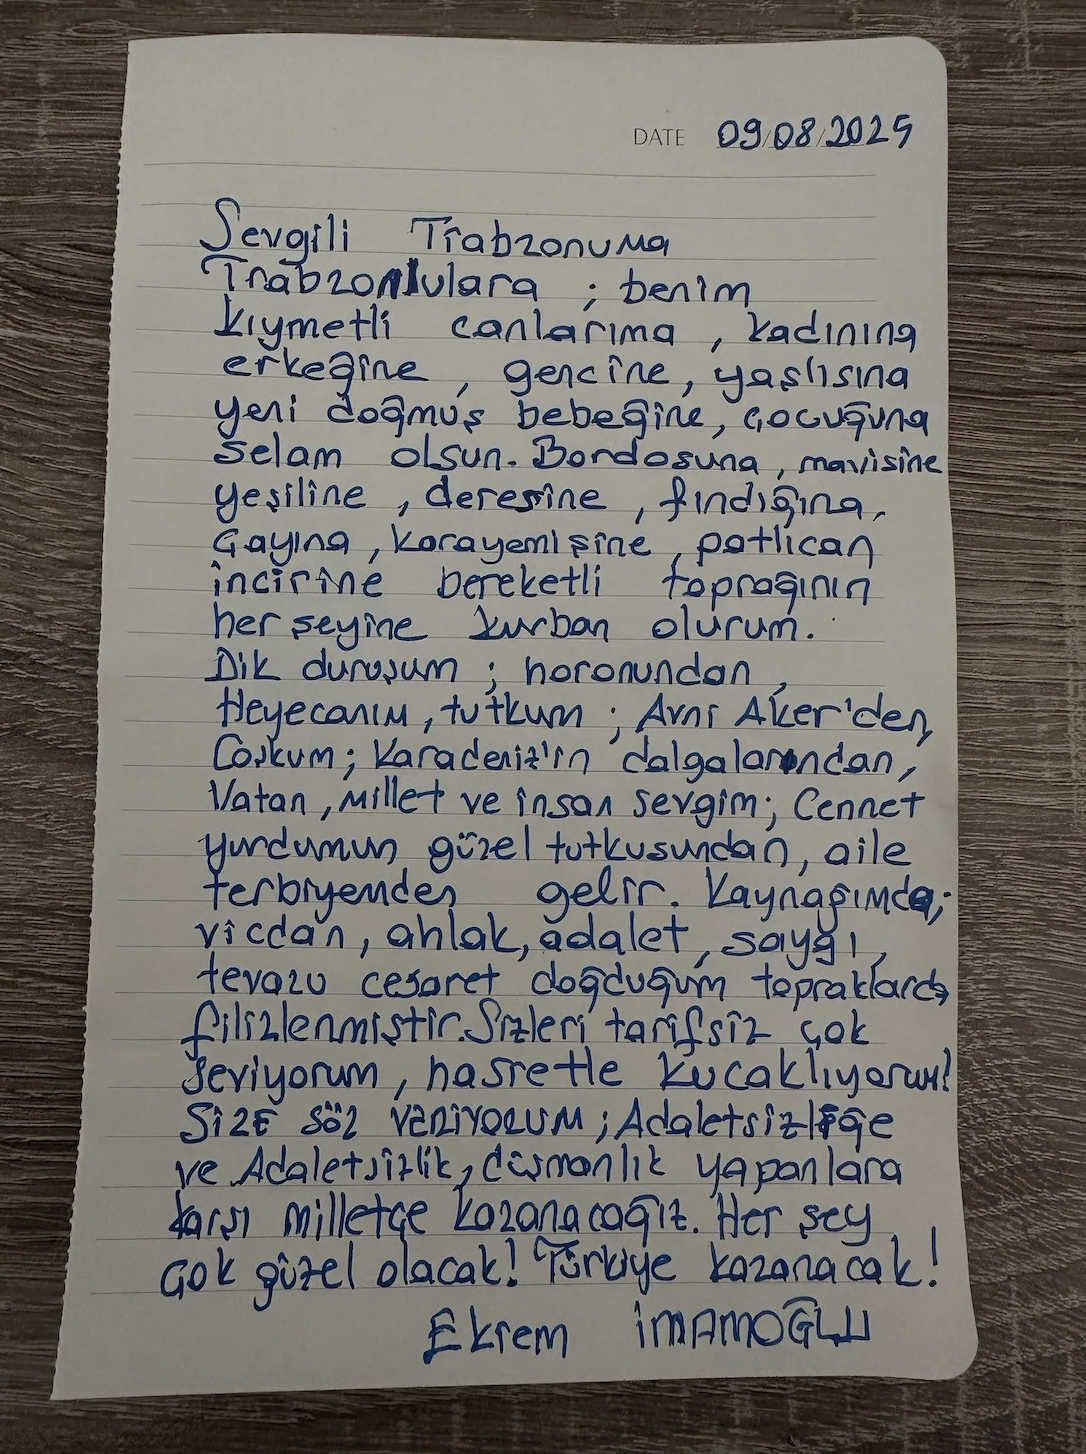 DATE 09/08/2025
Sevgili Trabzonuma
Trabzonlulara ; benim
kıymetli canlarıma , kadınına
erkeğine , gencine, yaşlısına
yeni doğmuş bebeğine, çocuğuna
selam olsun. Bordosuna , mavisine
yeşiline , deresine , fındığına,
Çayına , karayemişine , patlıcan
incirine bereketli toprağının
her şeyine kurban olurum.
Dik duruşum ; horonundan ,
Heyecanım , tutkum ; Avni Aker'den,
Coşkum ; Karadeniz'in dalgalarından ,
Vatan , millet ve insan sevgim ; Cennet
yurdumun güzel tutkusundan, aile
terbiyemden gelir. Kaynağımda;
vicdan, ahlak, adalet , saygı ,
tevazu cesaret doğduğum topraklarda
filizlenmiştir. Sizleri tarifsiz çok
seviyorum , hasretle kucaklıyorum!
SİZE SÖZ VERİYORUM ; Adaletsizliğe
ve Adaletsizlik, düşmanlık yapanlara
karşı milletçe kazanacağız. Her şey
Çok güzel olacak! Türkiye kazanacak!
Ekrem İMAMOĞLU